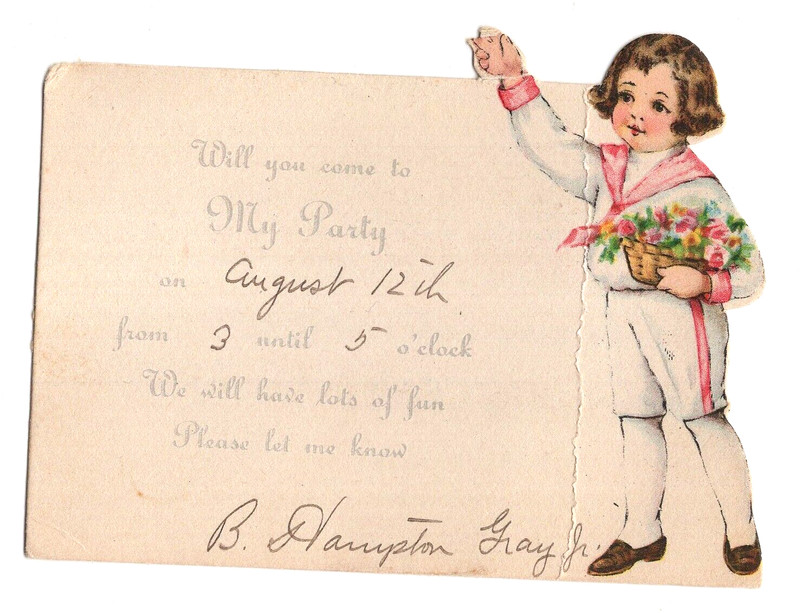 Will you come to
My Party
on August 12th
from 3 until 5 o'clock
We will have lots of fun
Please let me know
B. Hampton Gray Jr.